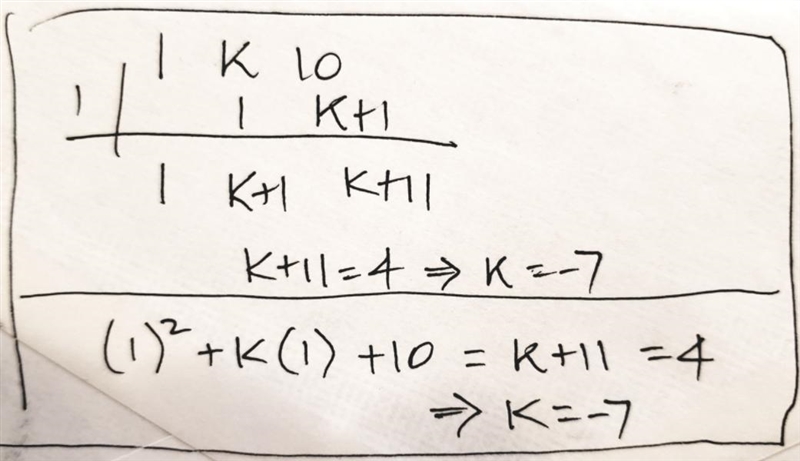 1 K 10
1 | 1 K+1
1 K+1 K+11
K+11=4 ⇒ K=-7
(1)² +K(1) +10 = K+11 =4
⇒ K=-7